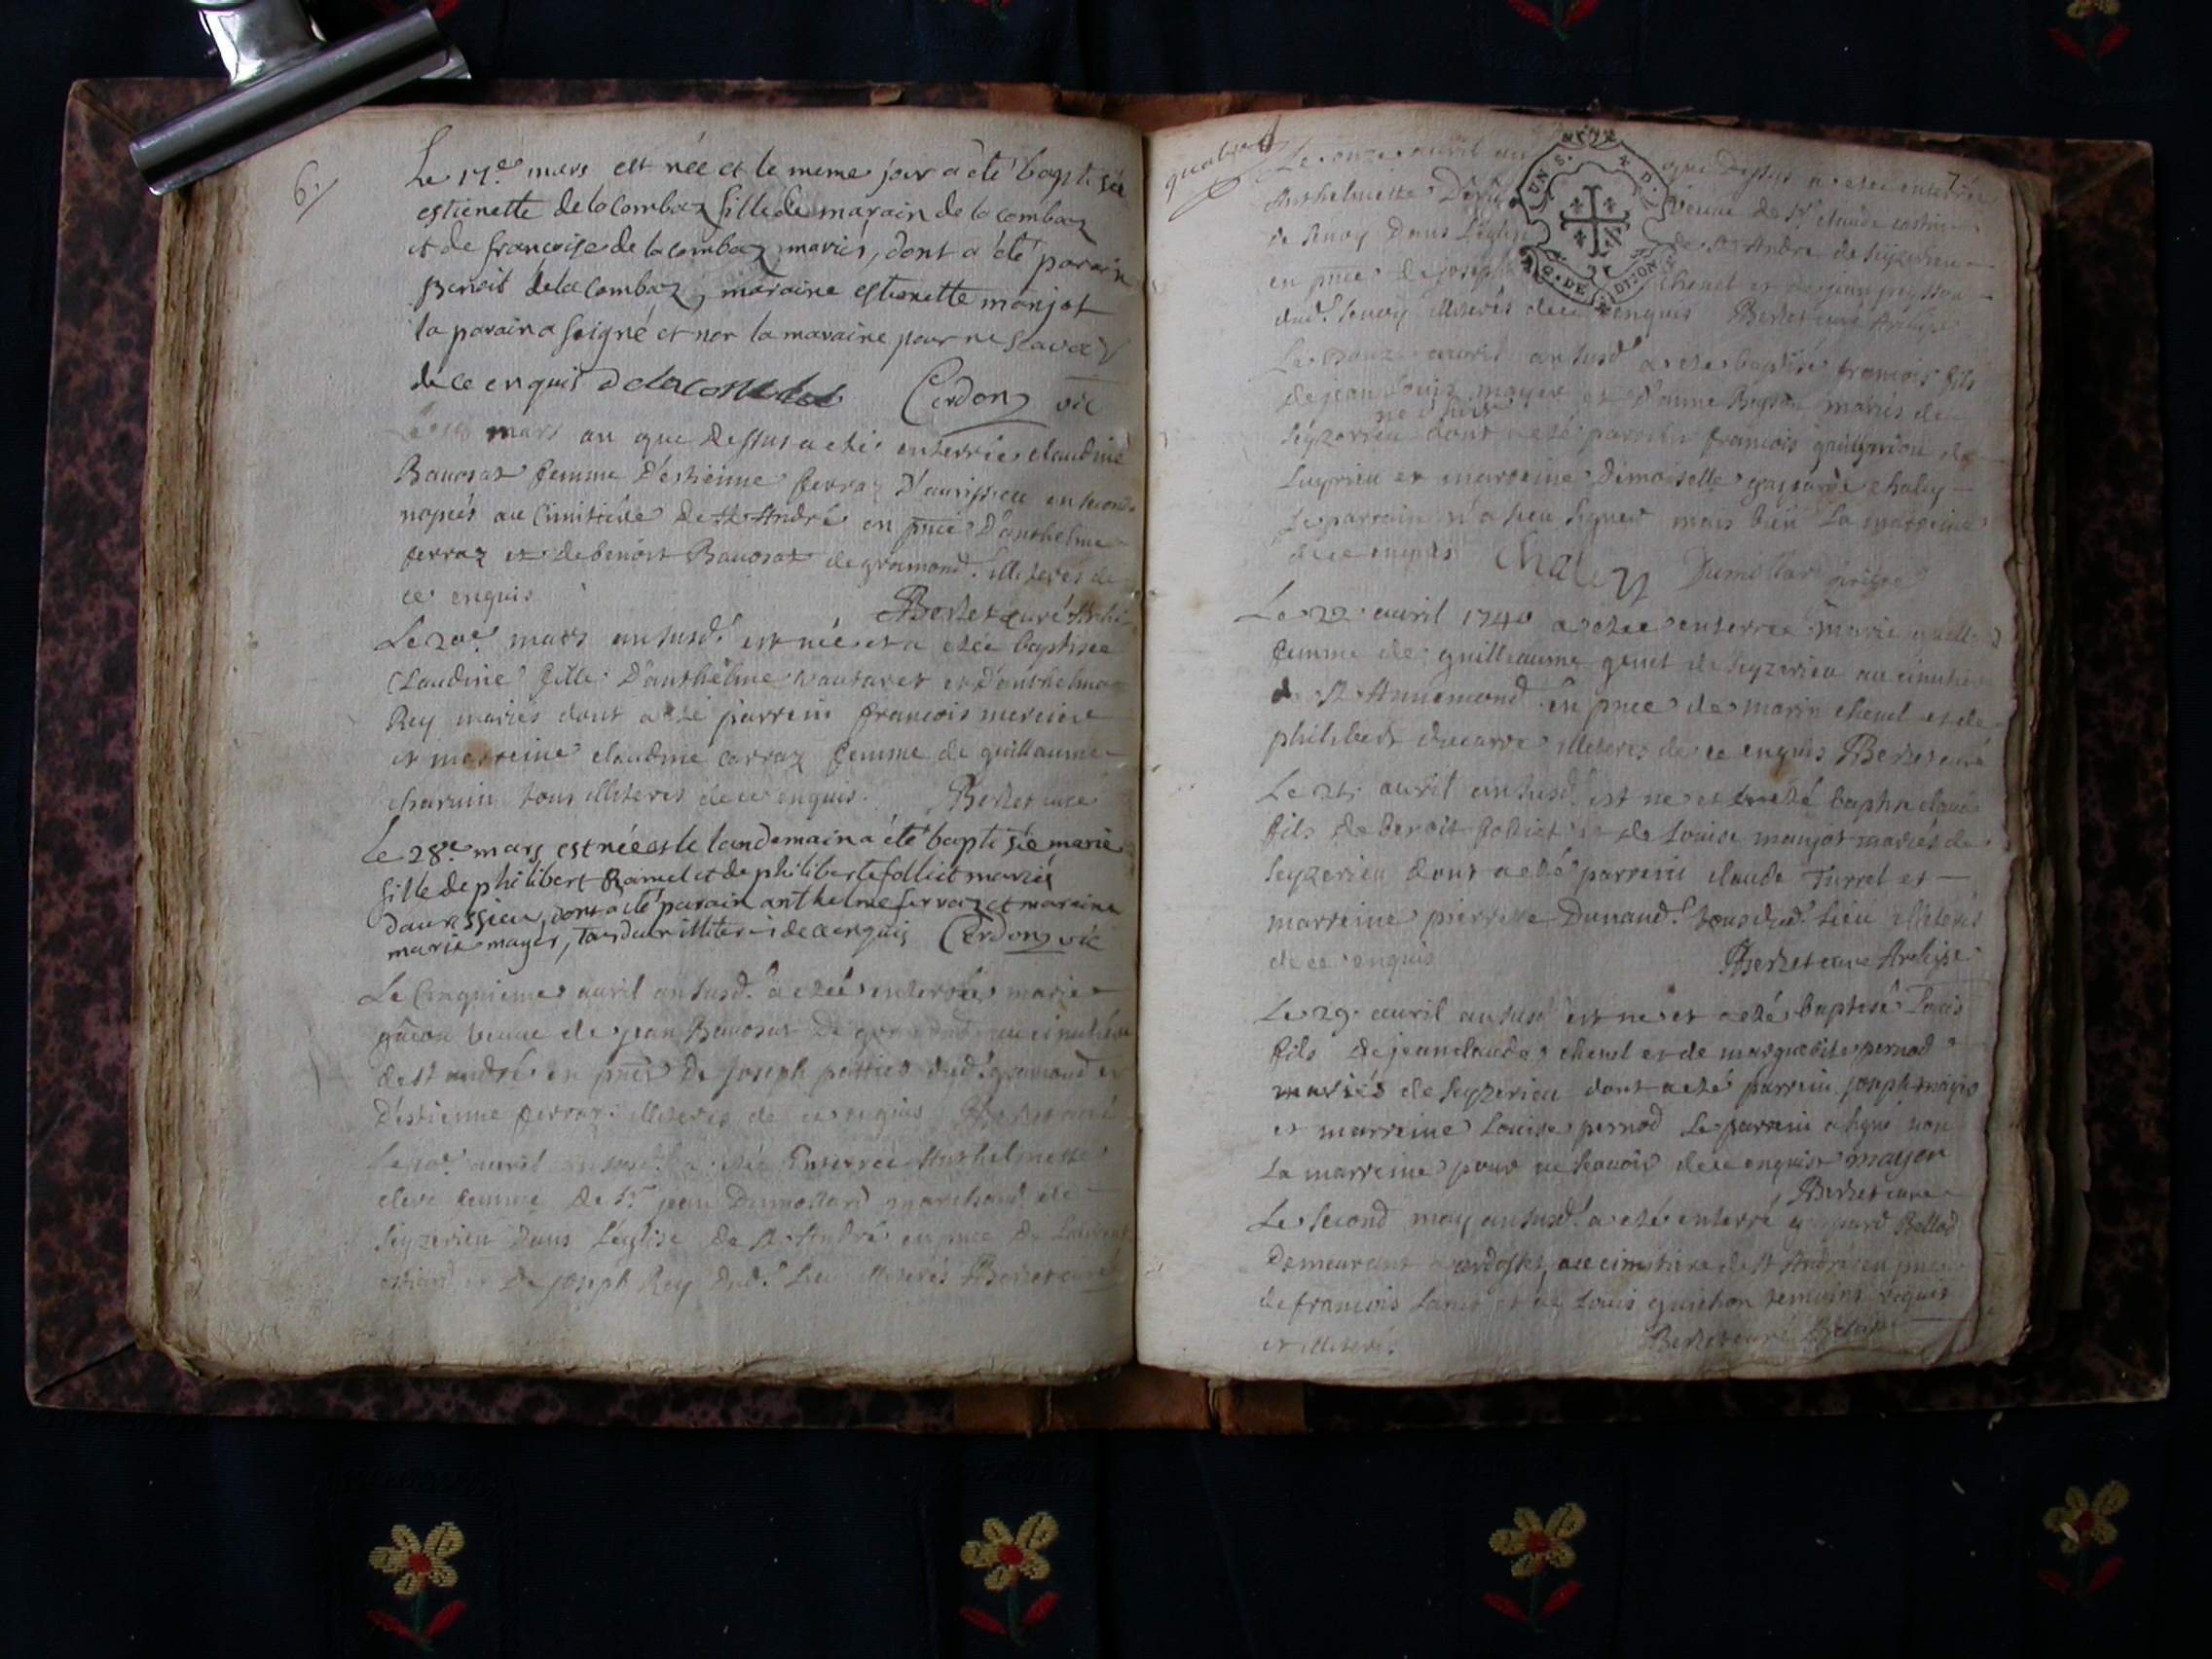 6.
Le 17.e mars est née et le meme jour a été baptisée
estienette de la Combaz fille de marain de la combaz
et de françoise de la combaz mariés, dont a été parain
benoit de la Combaz, maraine estienette manjot
la parain a soigné et non la maraine pour ne scavoir
de ce enquis delacombaz Cerdon vic
mars an que dessus a esté enterrée claudine
Bauosat femme d'estienne ferraz d'aurissieu en secondes
nopces au cimitiére de St André en pnce d'anthelme
ferraz et de benoit Bauosat de gramond. illiterés de
ce enquis Berlet curé Archi
Le 20.e mars an susd. est née et a estée baptisée
Claudine fille d'anthelme vautaret et d'anthelma
Rey mariés dont a esté parrein francois mercier
et marreine claudine carraz femme de guillaume
charuin tous illiteres de ce enquis. Berlet curé
Le 28.e mars est née et le landemain a été baptisée marie
fille de philibert Ramel et de philiberte folliet mariés
daurissieu, dont a été parain anthelme ferraz et maraine
marie mayer, tous deux illiterés de ce enquis Cerdon vic
Le Cinquieme auril an susd. a estée enterrée marie
gacon veuve de jean Bauosat de gramond au cimitiére
de st andré en pnce de joseph dud. gramond et
d'estienne ferraz illiteres de ce enquis Berlet curé
Le 10.e auril an susd. a estée Enterrée Anthelmette
femme de Sr jean Dumollard marchand de
Seyzerieu dans l'église de St André en pnce de Laurent
et de joseph Rey dud. lieu illiterés Berlet curé
7
quatre
Le onze auril an que dessus a estée enterrée
Anthelmette veuve de Sr claude
de senoy dans l'église de St André de seyzerieu
en pnce de joseph chenel et de jean
dud. senoy illiterés de ce enquis Berlet curé Archip
UN S. X D. G. DE DIJON
Le Douze auril an susd a esté baptisé francois fils
de jean louis mayer et d'anne mariés de
né d'hier
Seyzerieu dont a esté parrein francois de
Luyrieu et marreine Dimoiselle gasparde chaley
Le parrain n'a sceu signer mais bien la marreine
de ce enquis Chaley Dumollard
Le 22 auril 1740 a estée enterrée marie
femme de guilleaume genet de seyzerieu au cimitiere
de St Annemond en pnce de marin chenel et de
philibert ducarre illiteres de ce enquis Berlet curé
Le 25 auril an susd. est né et a esté baptisé claude
fils de benoit folliet et de Louise manjot mariés de
seyzerieu dont a esté parrein claude Turrel et
marreine pierrette Dunand. tous dud. lieu illiterés
de ce enquis Berlet curé Archip
Le 29 auril an susd est né et a esté baptisé Louis
fils de jean claude chenel et de marguerite pernod
mariés de seyzerieu dont a esté parrein joseph mayer
et marreine Louise pernod Le parrein a signé non
La marreine pour ne scavoir de ce enquis mayer
Berlet curé
Le second may an susd. a esté enterré gaspard Ballad
Demeurant a ardosset, au cimitiere de St André en pnce
de francois et de Louis guichon temoins requis
et illiteré. Berlet curé Archip